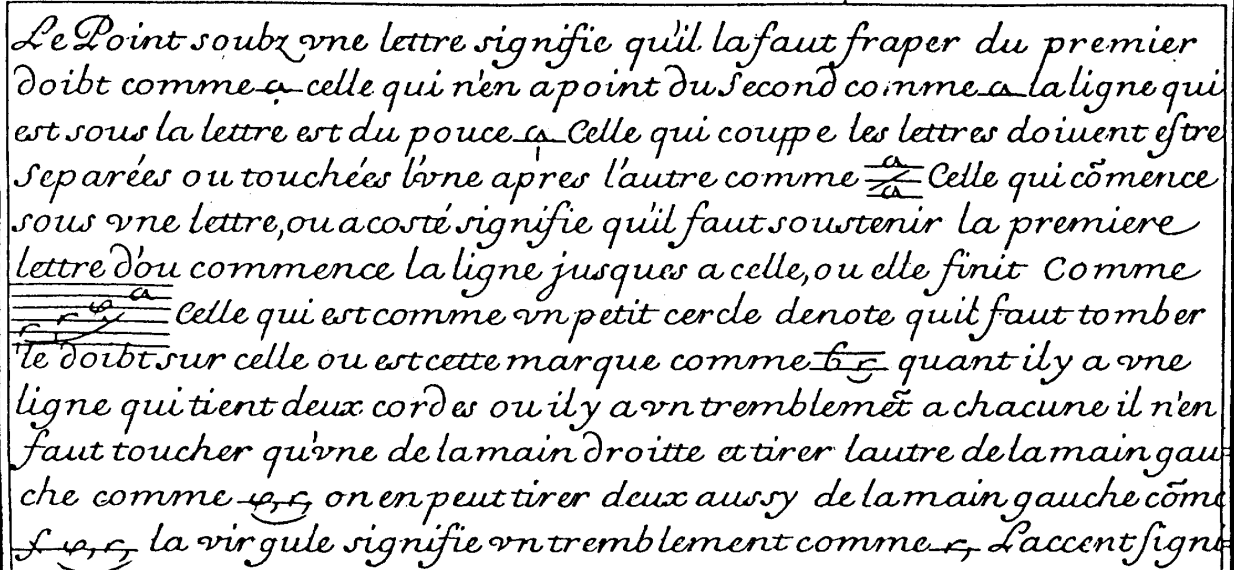 Le Point soubz vne lettre signifie qu'il la faut fraper du premier
doibt comme a celle qui n'en a point du second comme a la ligne qui
est sous la lettre est du pouce a Celle qui couppe les lettres doiuent estre
separées ou touchées l'vne apres l'autre comme a a Celle qui cõmence
sous vne lettre, ou a costé signifie qu'il faut soustenir la premiere
lettre d'ou commence la ligne jusques a celle, ou elle finit Comme
r r e a Celle qui est comme vn petit cercle denote quil faut tomber
le doibt sur celle ou est cette marque comme b r quant il y a vne
ligne qui tient deux cordes ou il y a vn tremblemẽt a chacune il n'en
faut toucher qu'vne de la main droitte et tirer lautre de la main gau=
che comme e, r, on en peut tirer deux aussy de la main gauche cõme
f e, r, la virgule signifie vn tremblement comme r, Laccent signi=